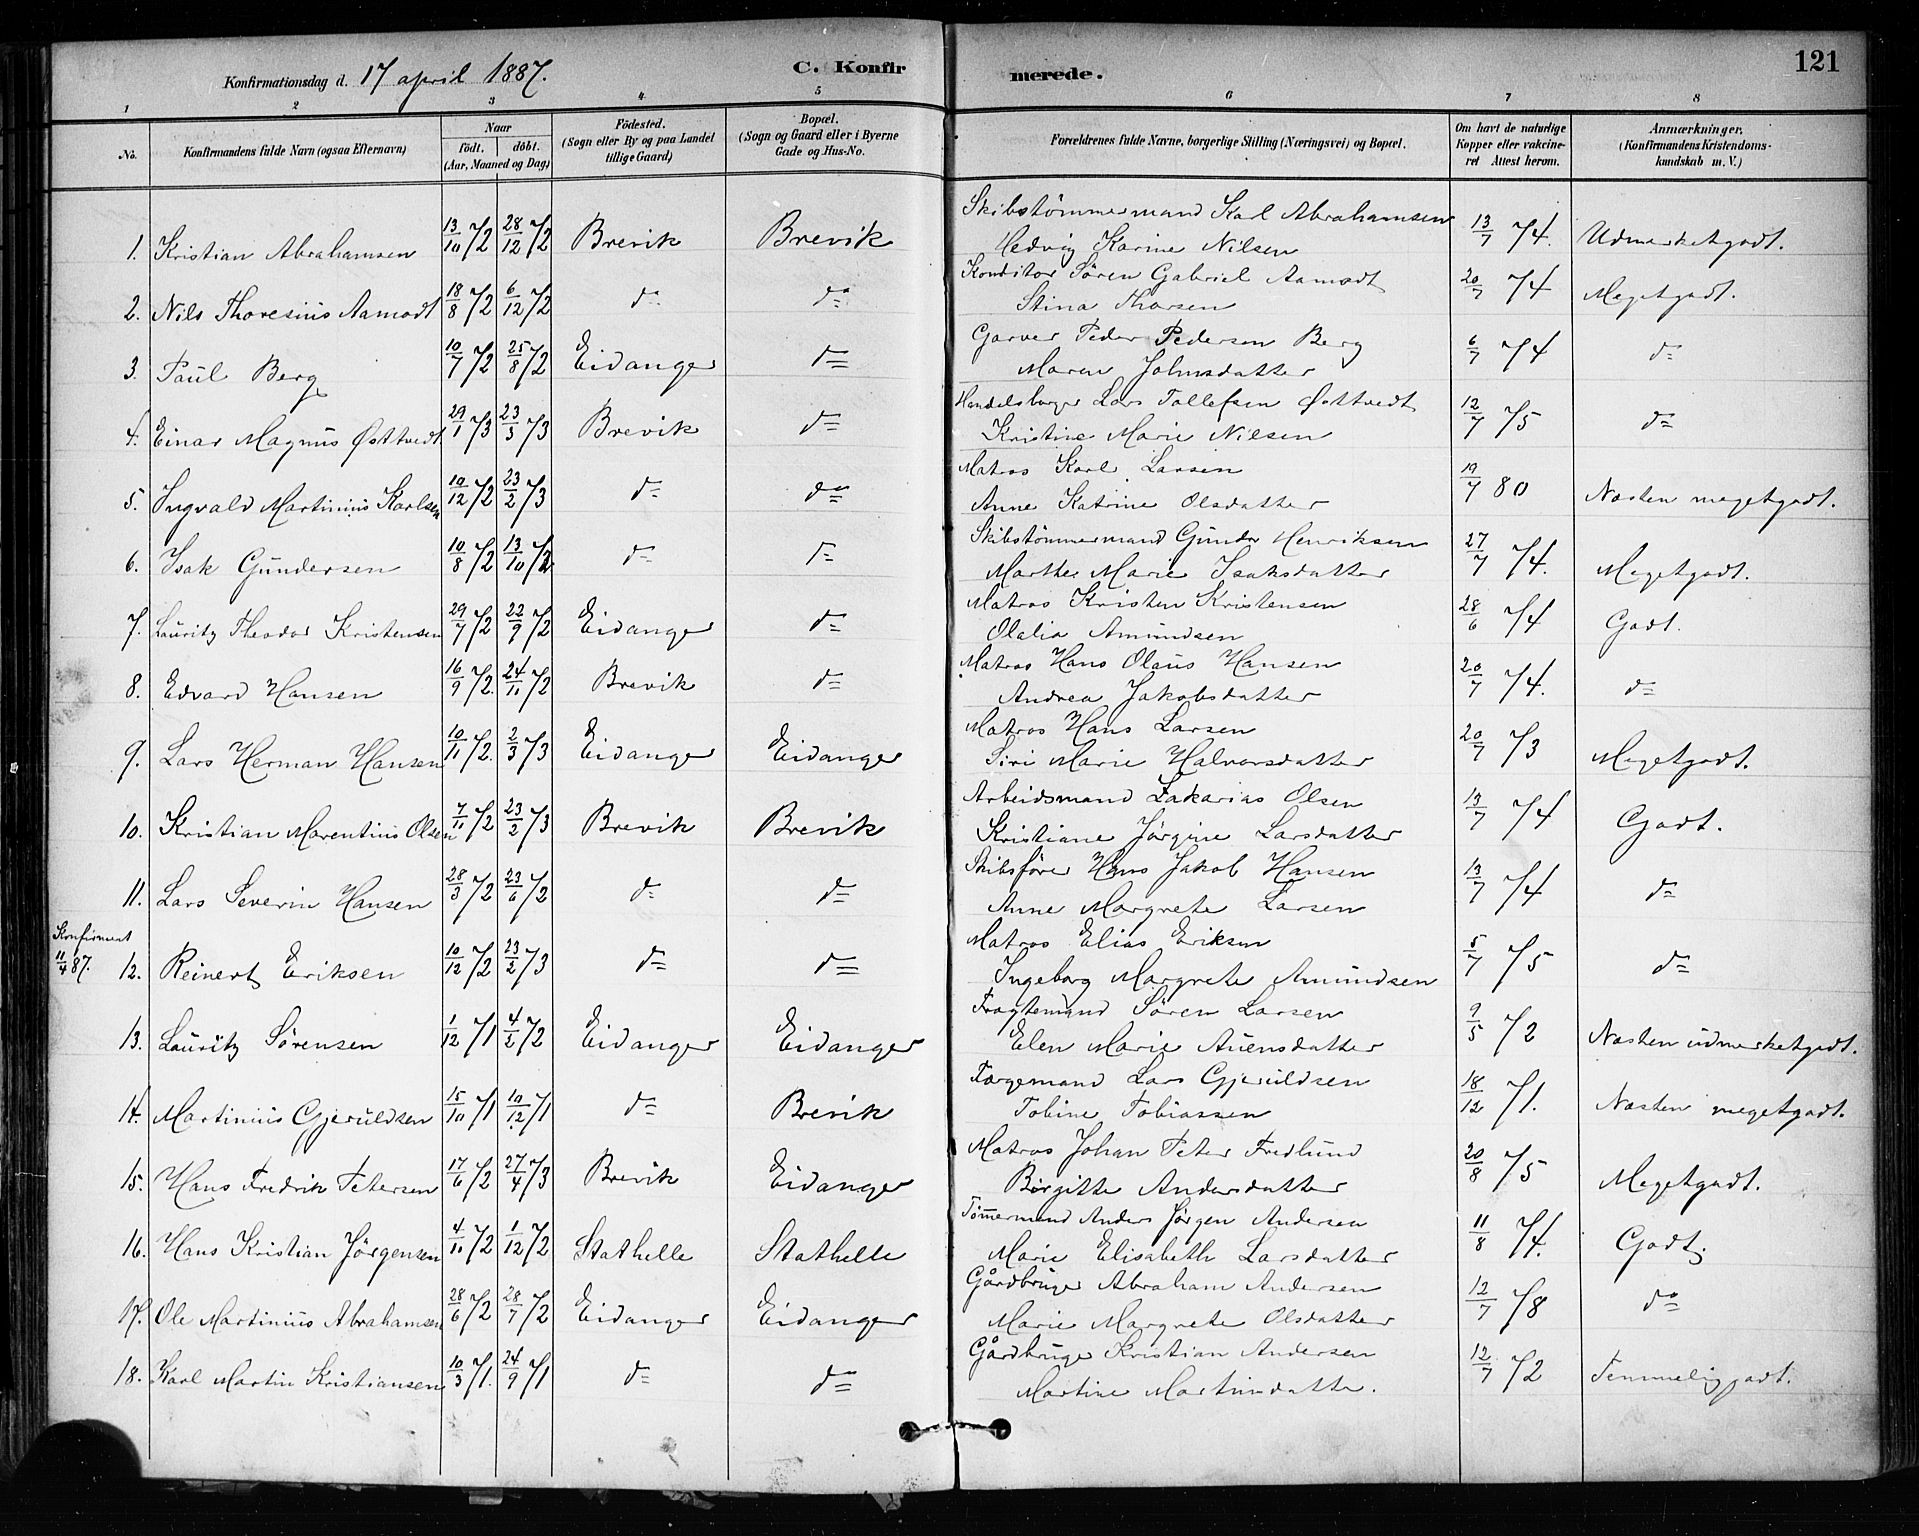 Konfirmationsdag d. 17 april 1887.
C. Konfirmerede.
121
1 2 3 4 5 6 7 8
No.
Konfirmandens fulde Navn (ogsaa Efternavn)
Naar födt. döbt. (Aar, Maaned og Dag)
Födested. (Sogn eller By og paa Landet tillige Gaard)
Bopæl. (Sogn og Gaard eller i Byerne Gade og Hus-No.
Forældrenes fulde Navne, borgerlige Stilling (Næringsvei) og Bopæl.
Om havt de naturlige Kopper eller vakcineret Attest herom.
Anmærkninger, (Konfirmandens Kristendomskundskab m. V.)
1. Kristian Abrahamsen 13/10 72 28/12 72 Brevik Brevik Skibstømmermand Karl Abrahamsen 13/7 74. Udmerketgodt.
Hedvig Karine Nilsen
2. Nils Thoresius Aamodt 18/8 72 6/12 72 do do Konditor Sören Gabriel Aamodt 20/7 74 Megetgodt.
Stina Thorsen
3. Paul Berg 10/7 72 25/8 72 Eidanger do Garver Peder Pedersen Berg 6/7 74 do
Maren Johnsdatter
4. Einar Magnus Østtvedt 29/1 73 23/3 73 Brevik do Handelsborger Lars Tollefsen Østtvedt 12/7 75 do
Kristine Marie Nilsen
5. Ingvald Martinius Karlsen 10/12 72 23/2 73 do do Matros Karl Larsen 19/7 80 Næsten megetgodt.
Anne Katrine Olsdatter
6. Isak Gundersen 10/8 72 13/10 72 do do Skibstømmermand Gunder Henriksen 27/7 74. Megetgodt.
Marthe Marie Isaksdatter
7. Lauritz Theodor Kristensen 29/7 72 22/9 72 Eidanger do Matros Kristen Kristensen 28/6 74 Godt.
Olalia Amundsen
8. Edvard Hansen 16/9 72. 24/11 72 Brevik do Matros Hans Olaus Hansen 20/7 74. do
Andrea Jakobsdatter
9. Lars Herman Hansen 10/11 72. 2/3 73 Eidanger Eidanger Matros Hans Larsen 20/7 73 Megetgodt.
Siri Marie Halvorsdatter
10. Kristian Marentius Olsen 7/11 72 23/2 73 Brevik Brevik Arbeidsmand Zakarias Olsen 13/7 74 Godt.
Kristiane Jørgine Larsdatter
11. Lars Severin Hansen 28/3 72 23/6 72 do do Skibsfører Hans Jakob Hansen 13/7 74 do
Anne Margrete Larsen
Konfirmert 11/4 87. 12. Reinert Eriksen 10/12 72 23/2 73 do do Matros Elias Eriksen 5/7 75 do
Ingeborg Margrete Amundsen
13. Lauritz Sørensen 1/12 71 4/2 72 Eidanger Eidanger Fragtemand Sören Larsen 9/5 72 Næsten udmerketgodt.
Elen Marie Auensdatter
14. Martinius Gjeruldsen 15/10 71 10/12 71 do Brevik Færgemand Lars Gjeruldsen 18/12 71. Næsten megetgodt.
Tobine Tobiassen
15. Hans Fredrik Petersen 17/6 72 27/4 73 Brevik Eidanger Matros Johan Peter Fredlund 20/8 75 Megetgodt.
Birgitte Andersdatter
16. Hans Kristian Jörgensen 4/11 72 1/12 72 Stathelle Stathelle Tömmermand Anders Jørgen Andersen 11/8 74. Godt.
Marie Elisabeth Larsdatter
17. Ole Martinius Abrahamsen 28/6 72 28/7 72 Eidanger Eidanger Gårdbruger Abraham Andersen 12/7 78 do
Marie Margrete Olsdatter
18. Karl Martin Kristiansen 10/3 71. 24/9 71 do do Gårdbruger Kristian Andersen 12/7 72 Temmelig godt.
Martine Martinsdatter.